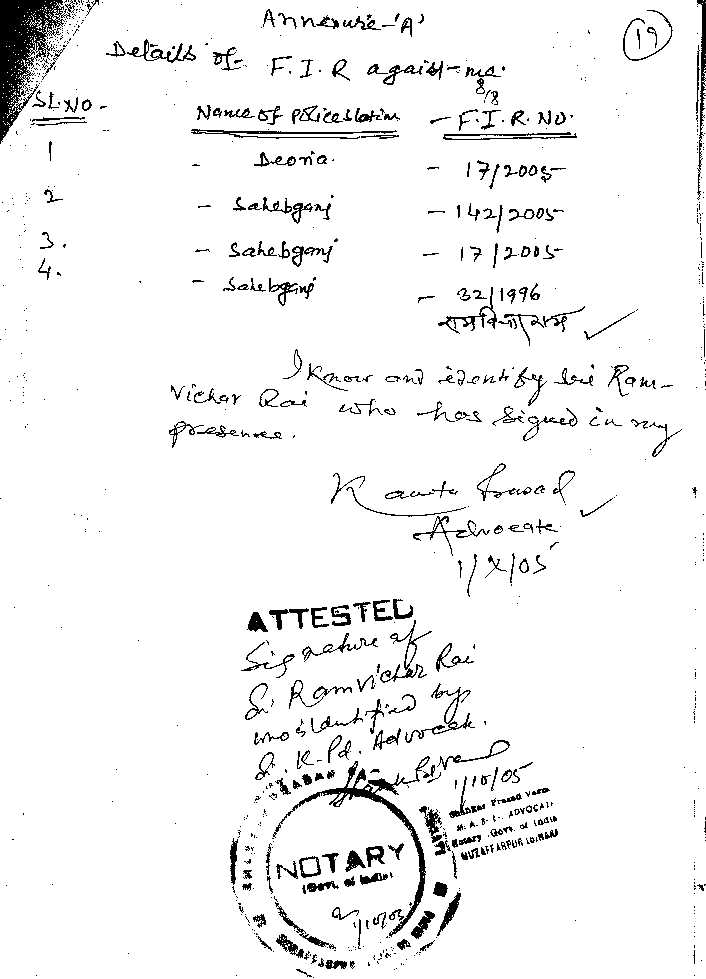 Annexure-'A'
19
Details of F.I.R agaist-me.
8/8
SL.NO - Name of Police station - F.I.R. NO.
1 - Deoria. - 17/2005
2 - Sahebganj - 142/2005
3. - Sahebganj - 17/2005
4. - Sahebganj - 32/1996
रामविचार राय
I Know and identify Sri Ram-
Vichar Rai who has signed in my
presence.
Prasad
Advocate
1/X/05
ATTESTED
Signature of
Sri Ramvichar Rai
who is identified by
Sri K. Pd. Advocate.
1/10/05
Shankar Prasad Verma
M. A. B. L. ADVOCATE
Notary Govt. of India
MUZAFFARPUR (BIHAR)
NOTARY
(Govt. of India)
1/10/05